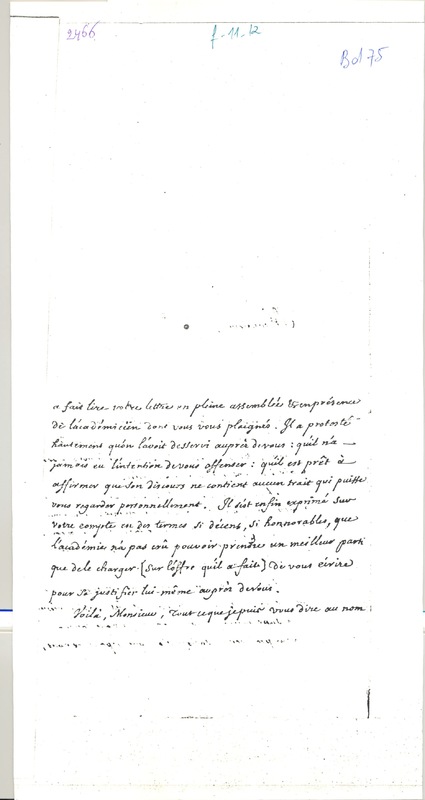 2466
f-11-12
Bd 75
a fait lire votre lettre en pleine assemblée & en présence
de l'académicien dont vous vous plaignés. Il a protesté
hautement qu'on l'avoit desservi auprès de vous : qu'il n'a
jamais eu l'intention de vous offenser : qu'il est prêt à
affirmer que son discours ne contient aucun trait qui puisse
vous regarder personnellement. Il s'est enfin exprimé sur
votre compte en des termes si décens, si honnorables, que
l'académie n'a pas crû pouvoir prendre un meilleur parti
que de le charger (sur l'offre qu'il a faite) de vous écrire
pour se justifier lui-même auprès de vous.
Voilà, Monsieur, tout ce que je puis vous dire au nom